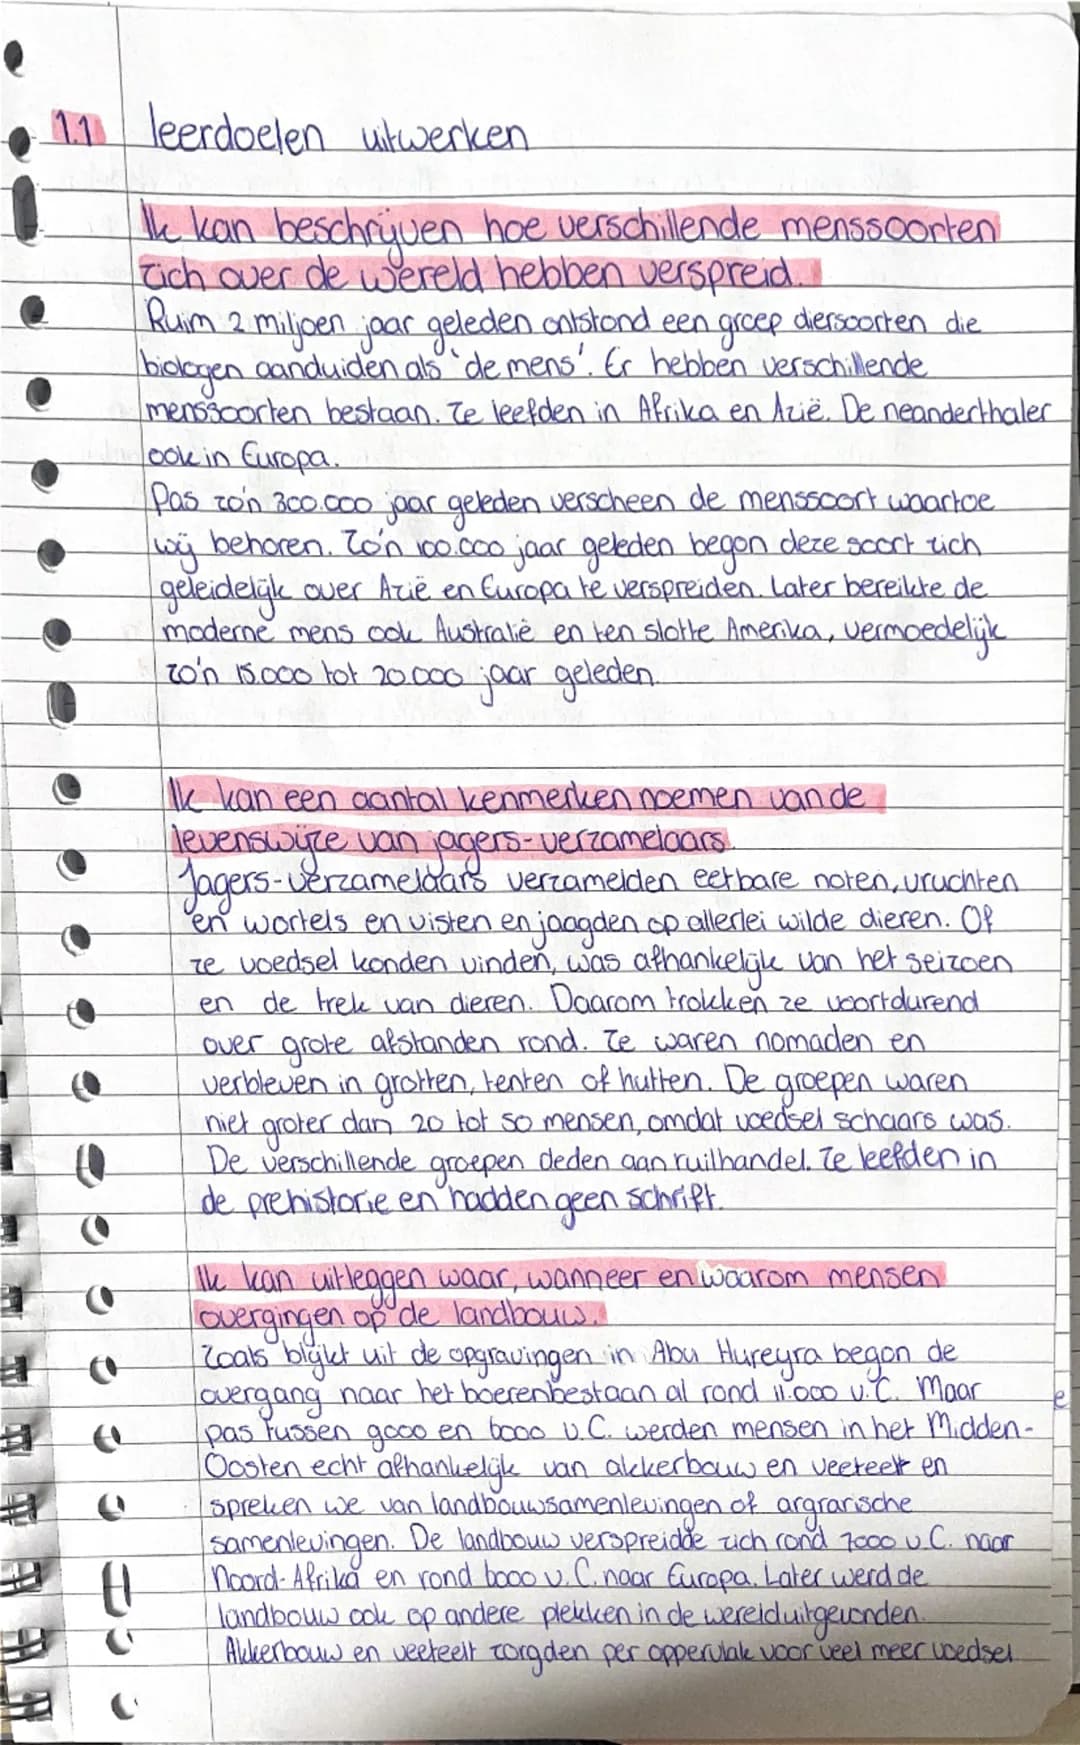 1.1 leerdoelen uitwerken
Ik kan beschrijven hoe verschillende menssoorten
zich over de wereld hebben verspreid.
Ruim 2 miljoen jaar geleden ontstond een groep diersoorten die
biologen aanduiden als 'de mens'. Er hebben verschillende
menssoorten bestaan. Ze leefden in Afrika en Azië. De neanderthaler
ook in Europa.
Pas zo'n 300.000 jaar geleden verscheen de menssoort waartoe
wij behoren. Zo'n 100.000 jaar geleden begon deze soort zich
geleidelijk over Azië en Europa te verspreiden. Later bereikte de
moderne mens ook Australië en ten slotte Amerika, vermoedelijk
zo'n 15.000 tot 20.000 jaar geleden.
Ik kan een aantal kenmerken noemen van de
levenswijze van jagers-verzamelaars.
Jagers-verzamelaars verzamelden eetbare noten, vruchten
en wortels en visten en jaagden op allerlei wilde dieren. Of
ze voedsel konden vinden, was afhankelijk van het seizoen
en de trek van dieren. Daarom trokken ze voortdurend
over grote afstanden rond. Ze waren nomaden en
verbleven in grotten, tenten of hutten. De groepen waren
niet groter dan 20 tot 50 mensen, omdat voedsel schaars was.
De verschillende groepen deden aan ruilhandel. Ze leefden in
de prehistorie en hadden geen schrift.
Ik kan uitleggen waar, wanneer en waarom mensen
overgingen op de landbouw.
Zoals blijkt uit de opgravingen in Abu Hureyra begon de
overgang naar het boerenbestaan al rond 11.000 v.C. Maar
pas tussen 9000 en 6000 v.C. werden mensen in het Midden-
Oosten echt afhankelijk van akkerbouw en veeteelt en
spreken we van landbouwsamenlevingen of argrarische
samenlevingen. De landbouw verspreidde zich rond 7000 v.C. naar
Noord-Afrika en rond 6000 v.C. naar Europa. Later werd de
landbouw ook op andere plekken in de wereld uitgevonden.
Akkerbouw en veeteelt zorgden per oppervlak voor veel meer voedsel
e